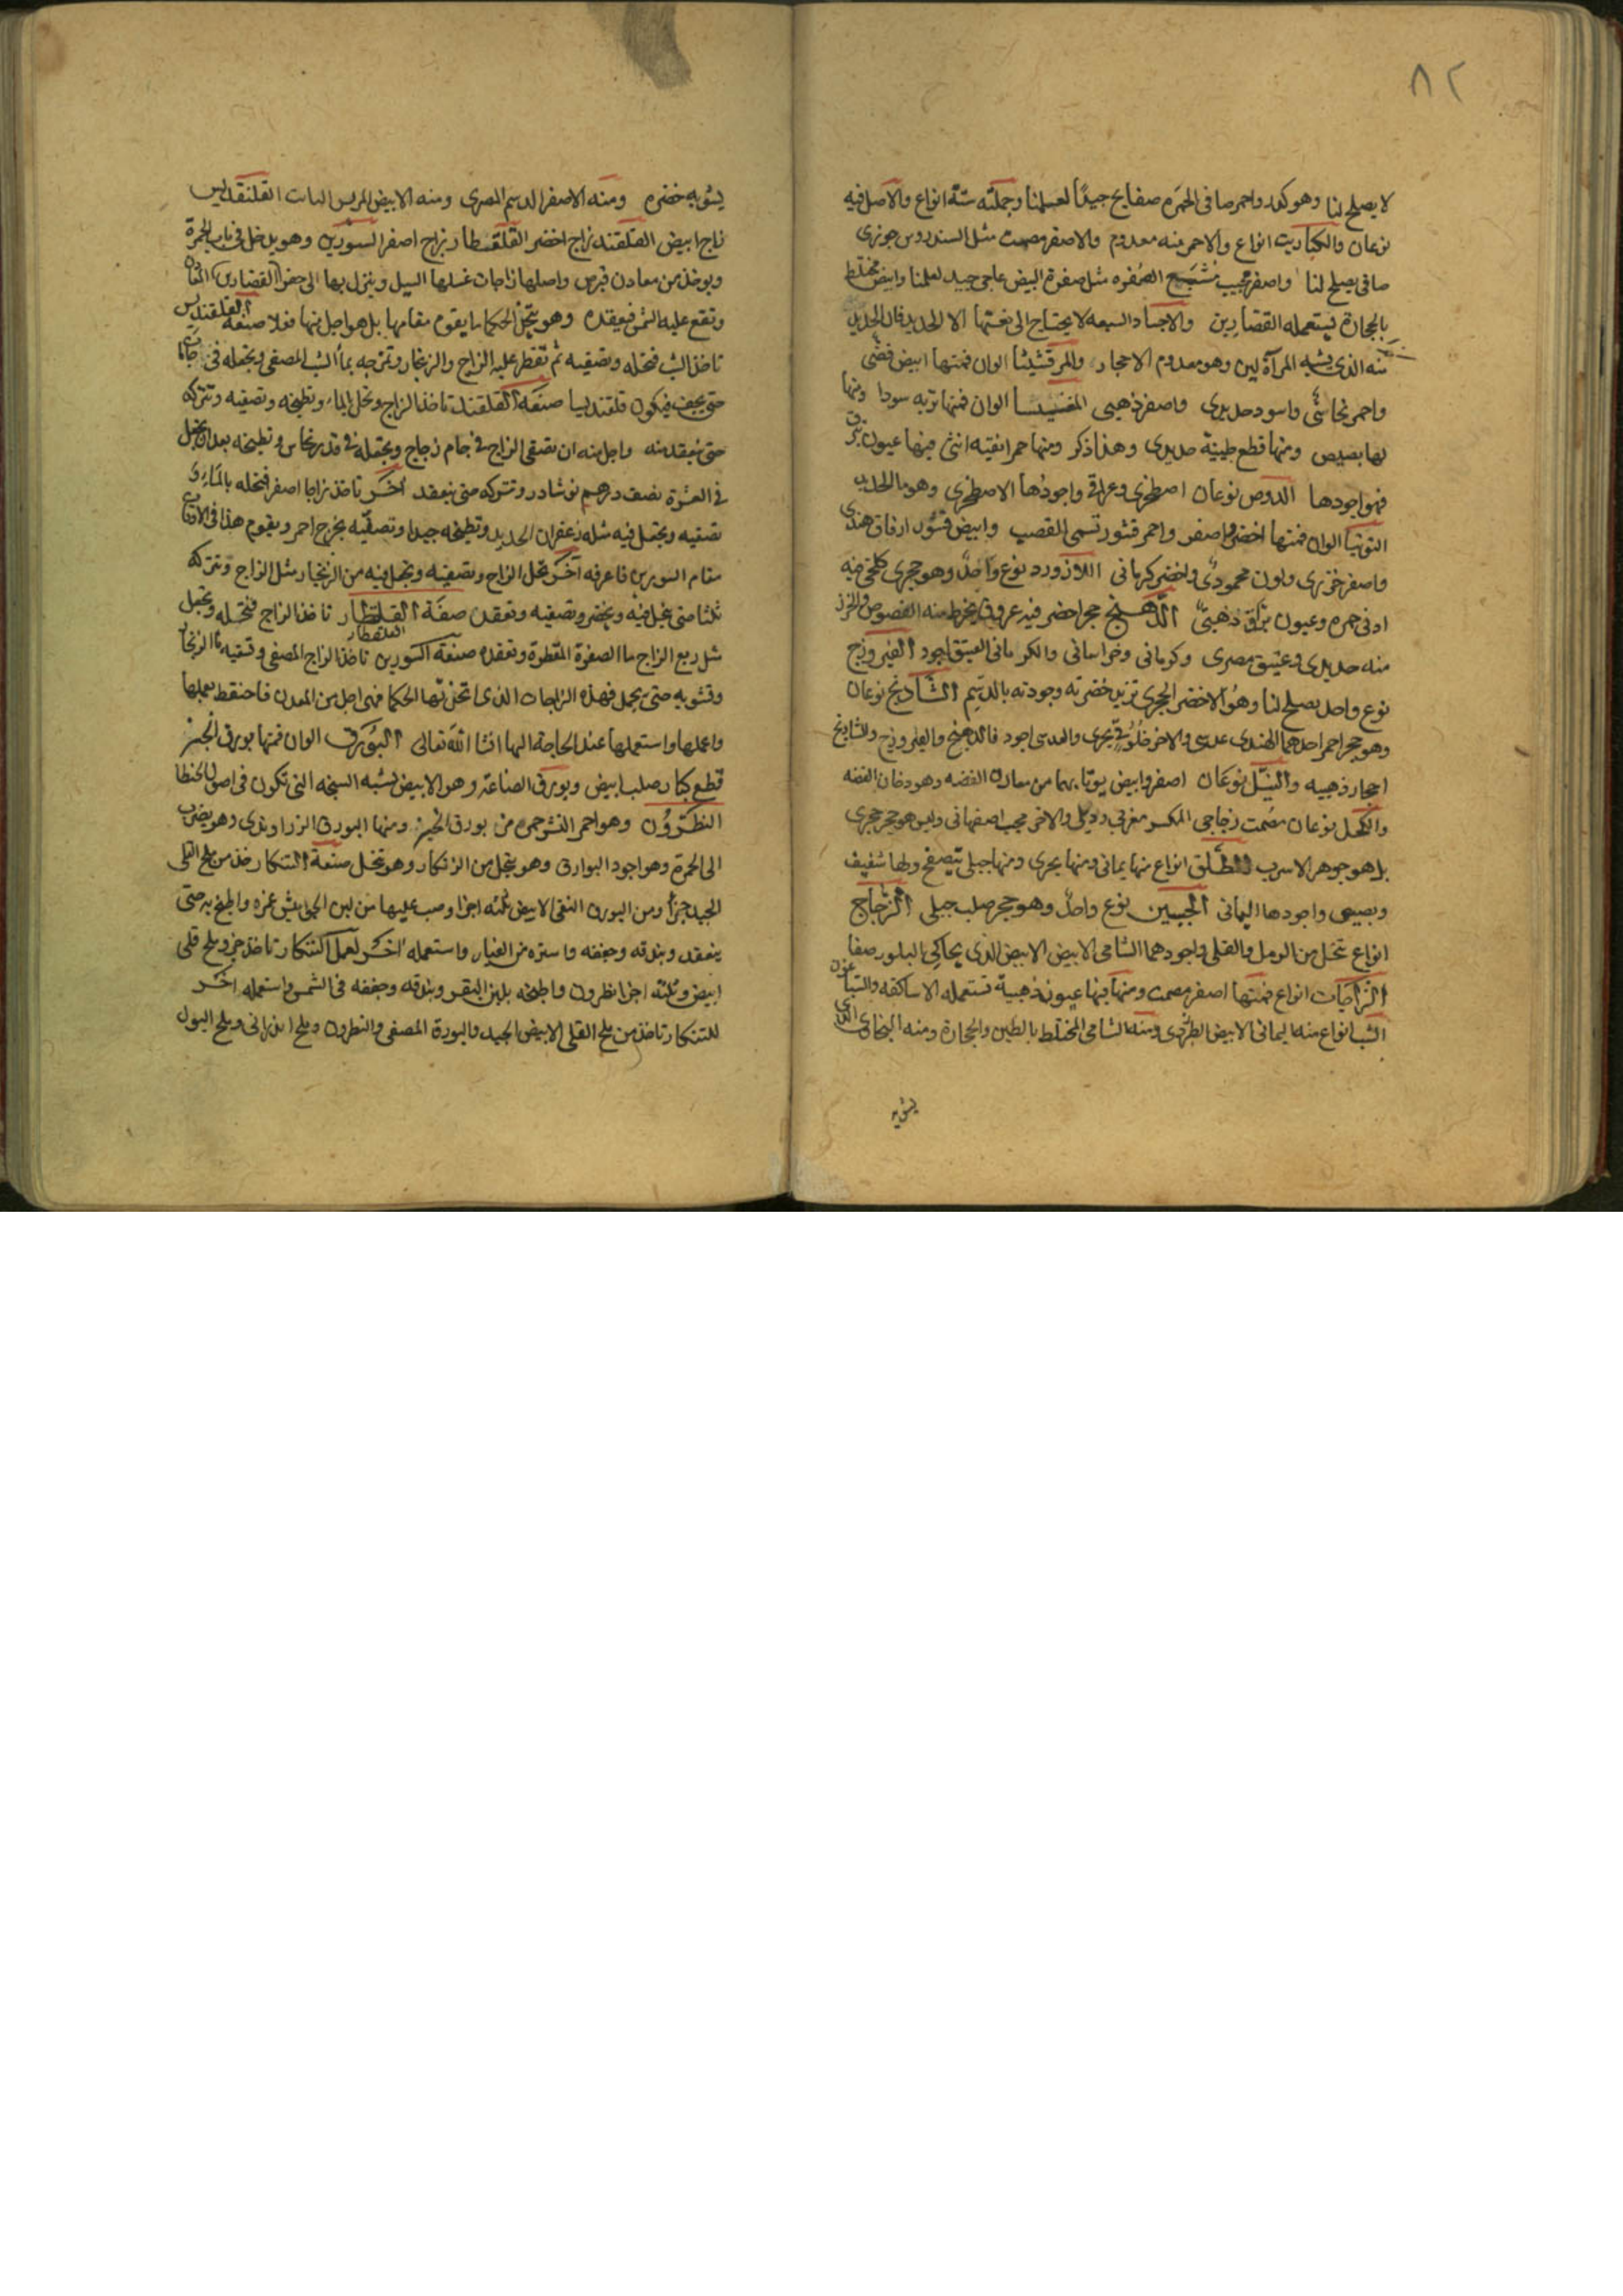 ٨٢
لا يصلح لنا وهو كمد واحمر صافى الحمره صفايح جيدًا لعملنا وجملته ستة انواع والاصل فيه
نوعان والكباريت انواع والاحمر منه معدوم والاصفر مصمت مثل السندروس جوزى
صافى يصلح لنا واصفر محبب مشبع الصفره مثل صفرة البيض عاجى جيد لعملنا وابيض مختلط
بالحجارة يستعمله القصارين والاجساد السبعه لا يحتاج الى نعتها الا الحديد فان الحديد
منه الذى يشبه المرآة لين وهو معدوم الاحجار والمرقشيثا الوان فمنها ابيض فضى
واحمر نحاسى واسود حديدى واصفر ذهبى المغنيسا الوان فمنها تربه سودا ومنها
لها بصيص ومنها قطع طينية حديدى وهذا ذكر ومنها حمرا نقيه انثى فيها عيون تبرق
فهو اجودها الدوص نوعان اصطخرى وعراقى واجودها الاصطخرى وهو ما الحديد
التوتيا الوان فمنها اخضر واصفر واحمر قشور تسمى القصب وابيض قشور ارقاق هندى
واصفر خزرى ولون محمودى واخضر كرمانى اللازورد نوع واحد وهو حجرى كحلى فيه
ادنى حمره وعيون براق ذهبى الدهنج حجر اخضر فيه عروق يخرط منه الفصوص والخرز
منه حديدى وعتيق مصرى وكرمانى وخراسانى والكرمانى العتيق اجود الفيروزج
نوع واحد يصلح لنا وهو الاخضر الحجرى تزيد خضرته وجودته بالدسم الشاذنج نوعان
وهو حجر احمر احدهما الهندى عدسى والاخر خلوقى بحرى والعدسى اجود فالدهنج والفيروزج والشاذنج
احجار ذهبيه والنيل نوعان اصفر وابيض يوتا بهما من معادن الفضه وهو دخان الفضه
والكحل نوعان مصمت زجاجى المكسر مغربى وديلى والاخر محبب اصفهانى وليس هو حجر حجرى
بل هو جوهر الاسرب الطلق انواع منها يمانى ومنها بحرى ومنها جبلى يتصفح ولها شفيف
وبصيص واجودها اليمانى الجبسين نوع واحد وهو حجر صلب جبلى الزجاج
انواع تتخذ من الرمل والقلى واجودهما الشامى الابيض الابيض الذى يحاكى البلور صفا
الزاجات انواع فمنها اصفر مصمت ومنها فيها عيون ذهبية تستعمله الاساكفه والصباغون
الشب انواع منه اليمانى الابيض الطبرزدى ومنه الشامى المختلط بالطين والحجارة ومنه البخارى الذى
يشوبه
يشوبه خضره ومنه الاصفر الدسم المصرى ومنه الابيض المريس النبات القلقنديس
زاج ابيض القلقند زاج اخضر القلقطار زاج اصفر السورين وهو يدخل فى باب الحمرة
ويوخذ من معادن قبرص واصلها زاجات غسلها السيل وينزل بها الى حفر
وتقع عليه الشمس فيعقده وهو يتخذ الحكما ما يقوم مقامها بل هو اجل منها فعلا صنعة القلقنديس
تاخذ الشب فتحله وتصفيه ثم تقطر عليه الزاج والزنجار وتمزجه بما الشب المصفى وتجعله فى جامات
حتى يجف فيكون قلقنديسا صنعة القلقند تاخذ الزاج وتحل بالماء وتطبخه وتصفيه وتتركه
حتى ينعقد منه واجل منه ان تصفى الزاج فى جام زجاج وتجعله فى قدر نحاس وتطبخه بعد ان تجعل
فى العشرة نصف درهم نوشادر وتتركه حتى ينعقد اخر تاخذ زاجا اصفر فتحله بالماء و
تصفيه وتجعل فيه مثله زعفران الحديد وتطبخه جيدا وتصفيه يخرج احمر ويقوم هذا فى الاوقات
مقام السورين فاعرفه آخر تحل الزاج وتصفيه وتجعل فيه من الزنجار مثل الزاج وتتركه
ثلثا حتى ينحل فيه ويخضر وتصفيه وتعقده صنعة القلقطار تاخذ الزاج فتحله وتجعل
القلقطار
مثل ربع الزاج ما الصفرة المقطرة وتعقده صنعة السورين تاخذ الزاج المصفى وتسقيه ما الزنجار
وتشويه حتى يحمل فهذه الزاجات الذى اتخذتها الحكما فهى اجل من المعدن فاحتفظ بعملها
واعملها واستعملها عند الحاجة اليها انشا الله تعالى البورق الوان فمنها بورق الخبز
قطع كبار صلب ابيض وبورق الصناعة وهو الابيض يشبه السبخه التى تكون فى اصول الحيطان
النطرون وهو احمر القشر حمره من بورق الخبز ومنها البورق الزراوندى وهو يضرب
الى الحمرة وهو اجود البوارق وهو يتخذ من الزنكار وهو تتخذ صنعة التنكار خذ من ملح القلى
الجيد جزأ ومن البورق النقى الابيض ثلثه اجزا وصب عليها من لبن الجواميش غمره واطبخ به حتى
ينعقد وبندقه وجففه واستره من الغبار واستعمله اخر لعمل التنكار تاخذ جزو ملح قلى
ابيض وثلثه اجزا نطرون واطبخه بلبن البقر وبندقه وجففه فى الشمس واستعمله اخر
للتنكار تاخذ من ملح القلى الابيض الجيد والبورة المصفى والنطرون وملح اندرانى وملح البول